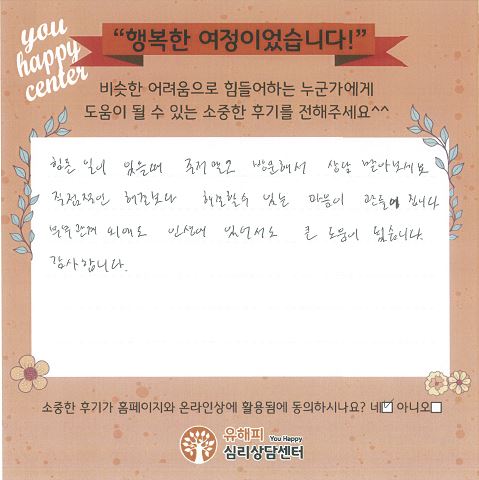 you
happy
center
“행복한 여정이었습니다!”
비슷한 어려움으로 힘들어하는 누군가에게
도움이 될 수 있는 소중한 후기를 전해주세요^^
힘든 일이 있을때 주저말고 방문해서 상담 받아보세요
직접적인 해결보다 해결할수 있는 마음이 만들어 집니다
부부관계 외에도 인생에 있어서도 큰 도움이 됬습니다.
감사합니다.
소중한 후기가 홈페이지와 온라인상에 활용됨에 동의하시나요? 네☑ 아니오☐
유해피 You Happy
심리상담센터